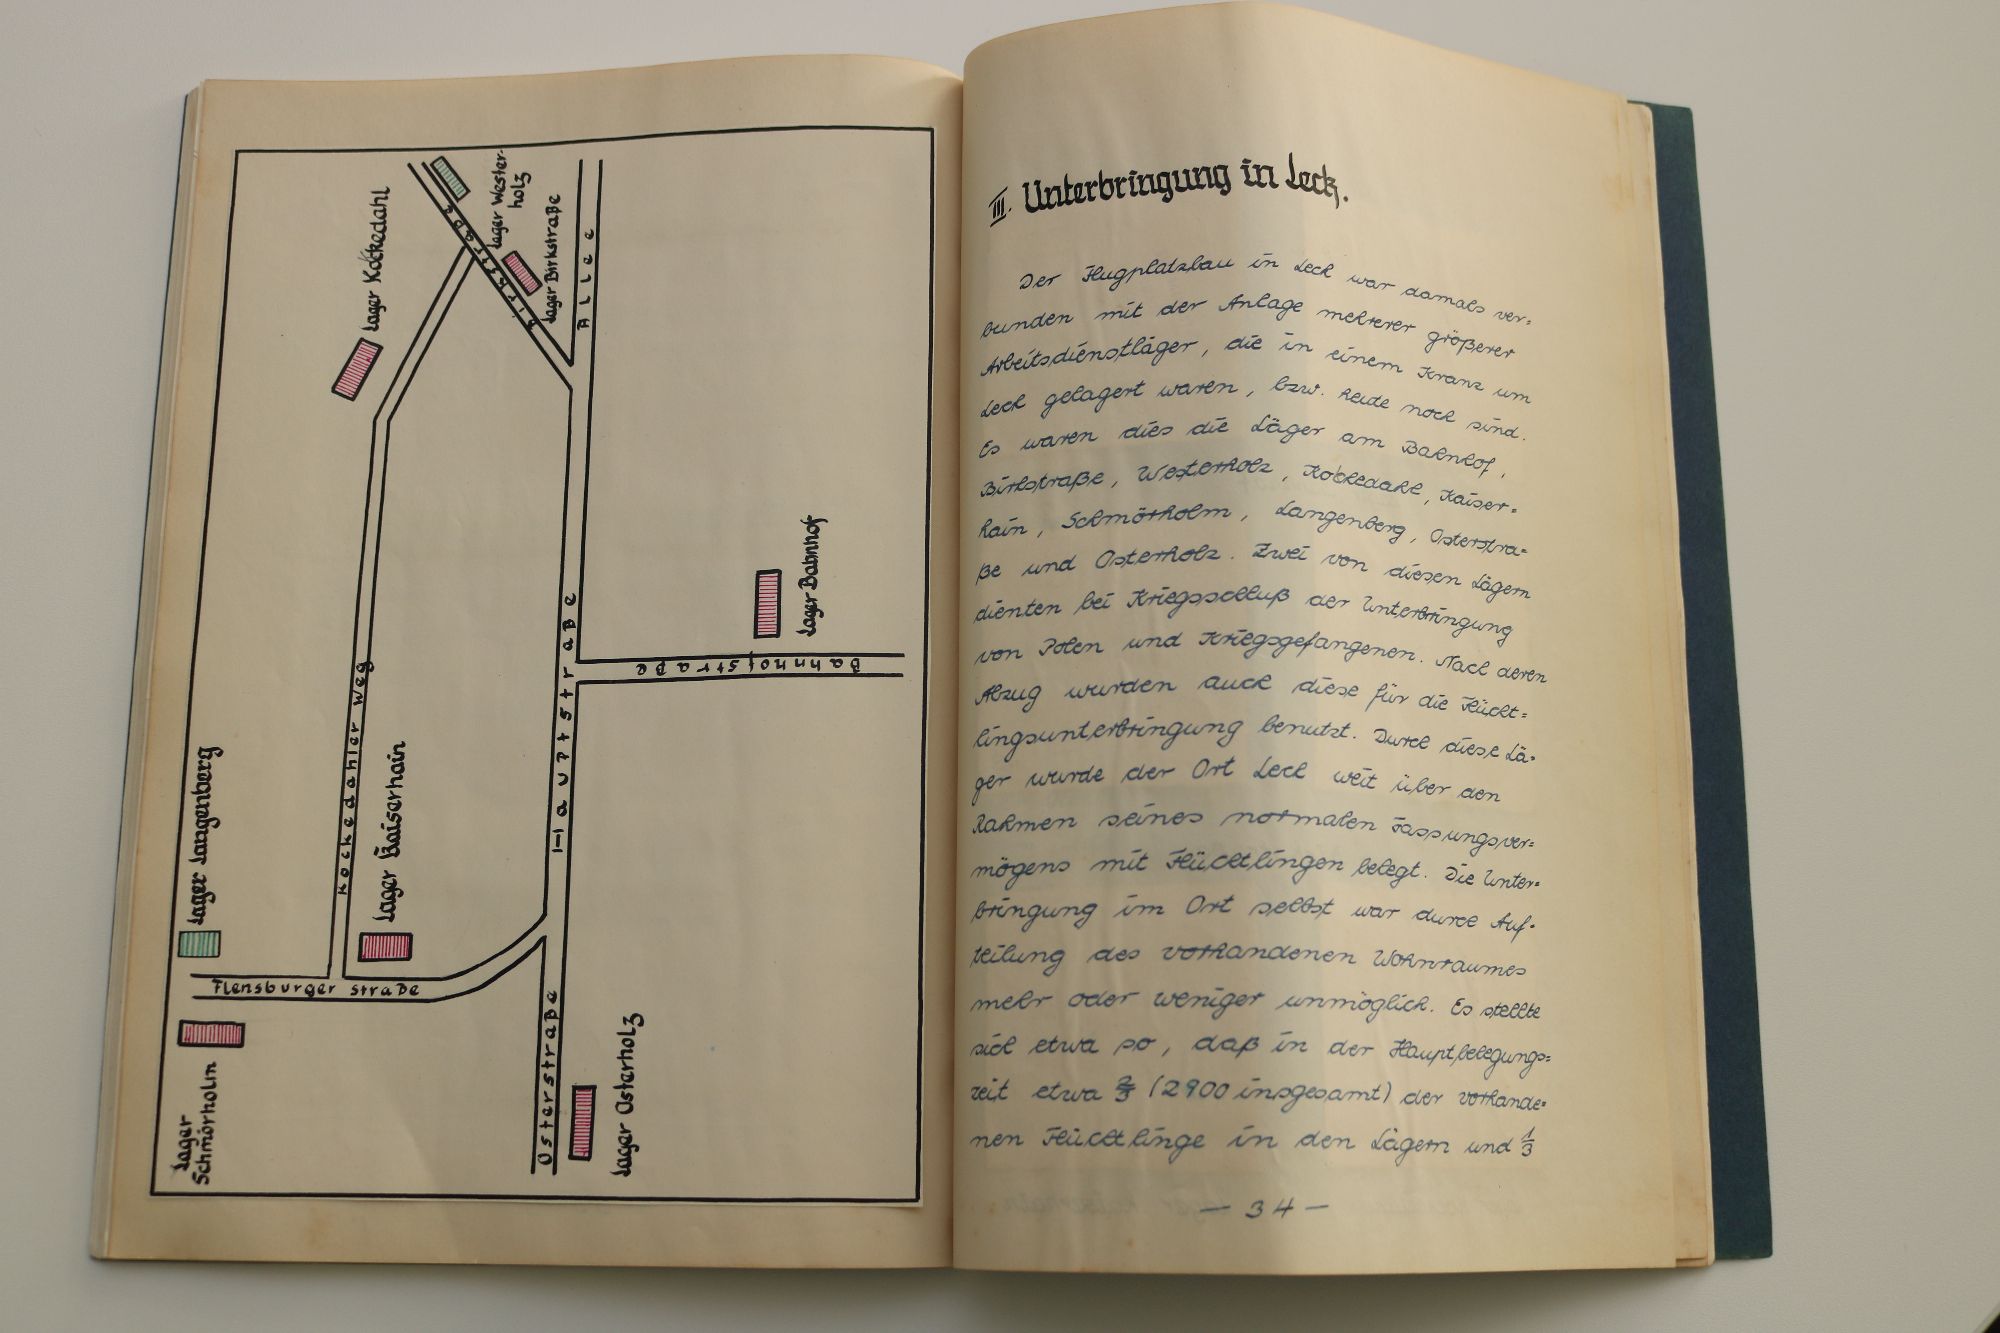 Lager Kockedahl
Lager Wester-
holz
Lager Birkstraße
Birkstraße
Allee
Lager Bahnhof
Bahnhofstraße
Hauptstraße
Kockedahler Weg
Lager Langenberg
Lager Kaiserhain
Flensburger Straße
Lager
Schmörholm
Osterstraße
Lager Osterholz
III. Unterbringung in Leck.
Der Flugplatzbau in Leck war damals ver=
bunden mit der Anlage mehrerer größerer
Arbeitsdienstläger, die in einem Kranz um
Leck gelagert waren, bzw. heute noch sind.
Es waren dies die Läger am Bahnhof,
Birkstraße, Westerholz, Kockedahl, Kaiser=
hain, Schmörholm, Langenberg, Osterstra=
ße und Osterholz. Zwei von diesen Lägern
dienten bei Kriegsschluß der Unterbringung
von Polen und Kriegsgefangenen. Nach deren
Abzug wurden auch diese für die Flücht=
lingsunterbringung benutzt. Durch diese Lä=
ger wurde der Ort Leck weit über den
Rahmen seines normalen Fassungsver=
mögens mit Flüchtlingen belegt. Die Unter=
bringung im Ort selbst war durch Auf=
teilung des vorhandenen Wohnraumes
mehr oder weniger unmöglich. Es stellte
sich etwa so, daß in der Hauptbelegungs=
zeit etwa 2/3 (2900 insgesamt) der vorhande=
nen Flüchtlinge in den Lägern und 1/3
— 34 —